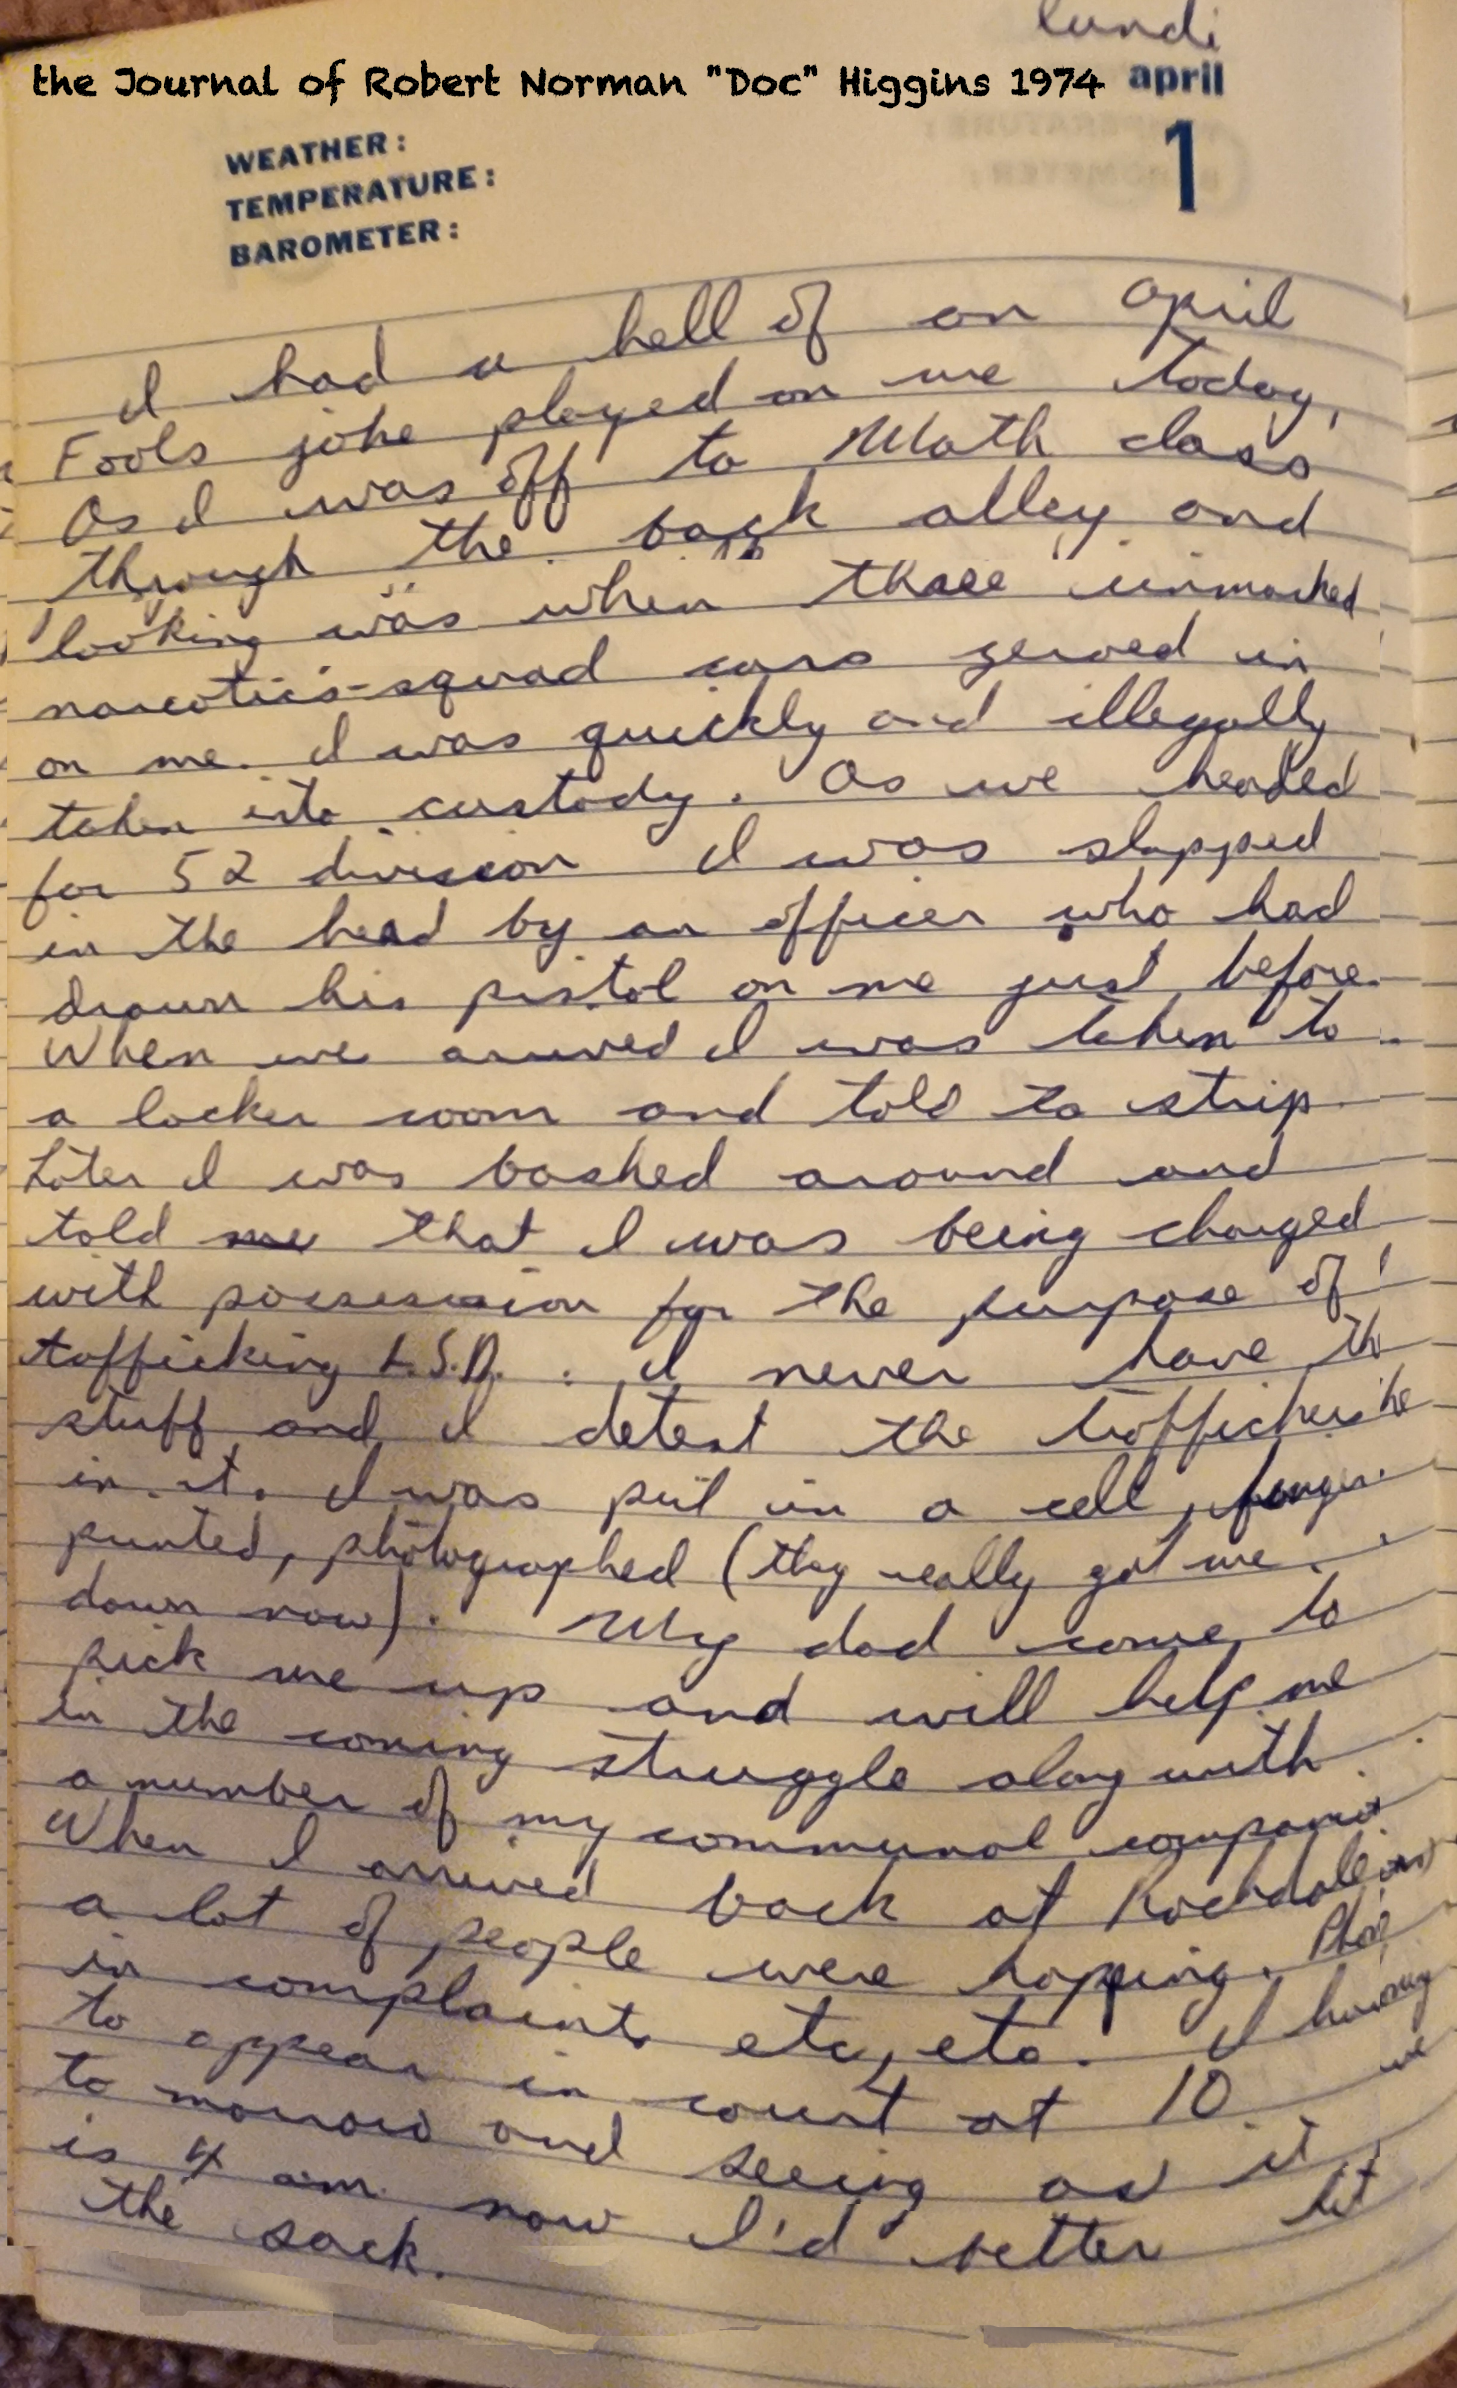 lundi
the Journal of Robert Norman "Doc" Higgins 1974 april
1
WEATHER:
TEMPERATURE:
BAROMETER:
I had a hell of an April
Fools joke played on me today,
As I was off to Math class
through the back alley and
looking was when three unmarked
narcotics-squad cars zeroed in
on me. I was quickly and illegally
taken into custody. As we headed
for 52 division I was slapped
in the head by an officer who had
drawn his pistol on me just before.
When we arrived I was taken to
a locker room and told to strip
Later I was bashed around and
told me that I was being charged
with possession for the purpose of
tafficking L.S.D. . I never have
stuff and I detest the traffickers
in it. I was put in a cell, finger
printed, photographed (they really got me
down now). My dad come to
pick me up and will help me
in the coming struggle along with
a number of my communal
When I arrived back at Rochdale
a lot of people were hopping.
in complaints etc, etc. I
to appear in court at 10
to morrow and seeing as it
is 4 am now I'd better hit
the sack.